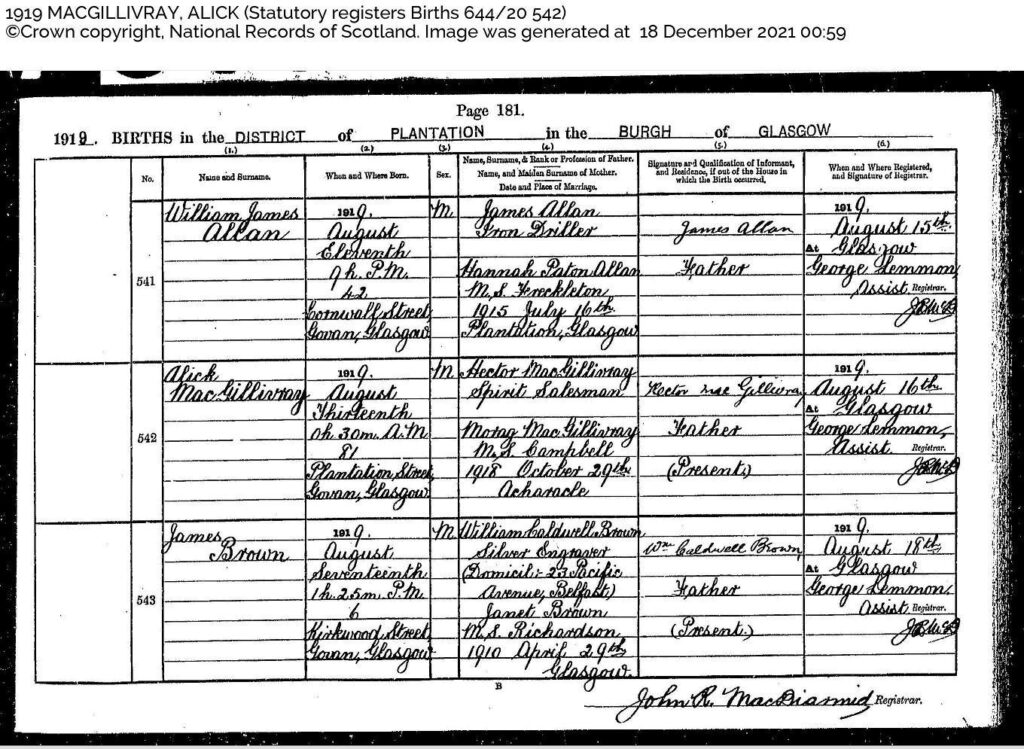 1919 MACGILLIVRAY, ALICK (Statutory registers Births 644/20 542)
©Crown copyright, National Records of Scotland. Image was generated at 18 December 2021 00:59
Page 181.
1919. BIRTHS in the DISTRICT of PLANTATION in the BURGH of GLASGOW
(1.) (2.) (3.) (4.) (5.) (6.)
No.
Name and Surname.
When and Where Born.
Sex.
Name, Surname, & Rank or Profession of Father.
Name, and Maiden Surname of Mother.
Date and Place of Marriage.
Signature and Qualification of Informant,
and Residence, if out of the House in
which the Birth occurred.
When and Where Registered,
and Signature of Registrar.
541
William James
Allan
1919.
August
Eleventh
9h. P.M.
42
Cornwall Street
Govan, Glasgow
M.
James Allan
Iron Driller
Hannah Paton Allan
M.S. Freckleton
1915 July 16th
Plantation, Glasgow
James Allan
Father
1919.
August 15th.
At Glasgow
George Lemmon,
Assist. Registrar.
542
Alick
MacGillivray
1919.
August
Thirteenth
0h. 30m. A.M.
81
Plantation Street,
Govan, Glasgow
M.
Hector MacGillivray
Spirit Salesman
Morag MacGillivray
M.S. Campbell
1918 October 29th
Acharacle
Hector Mac Gillivray
Father
(Present.)
1919.
August 16th.
At Glasgow
George Lemmon,
Assist. Registrar.
543
James
Brown
1919.
August
Seventeenth
1h. 25m. P.M.
6
Kirkwood Street,
Govan, Glasgow
M.
William Caldwell Brown
Silver Engraver
(Domicil:- 23 Pacific
Avenue, Belfast)
Janet Brown
M.S. Richardson
1910 April 29th
Glasgow.
Wm Caldwell Brown
Father
(Present.)
1919.
August 18th
At Glasgow
George Lemmon,
Assist. Registrar.
B
John R. MacDiarmid Registrar.